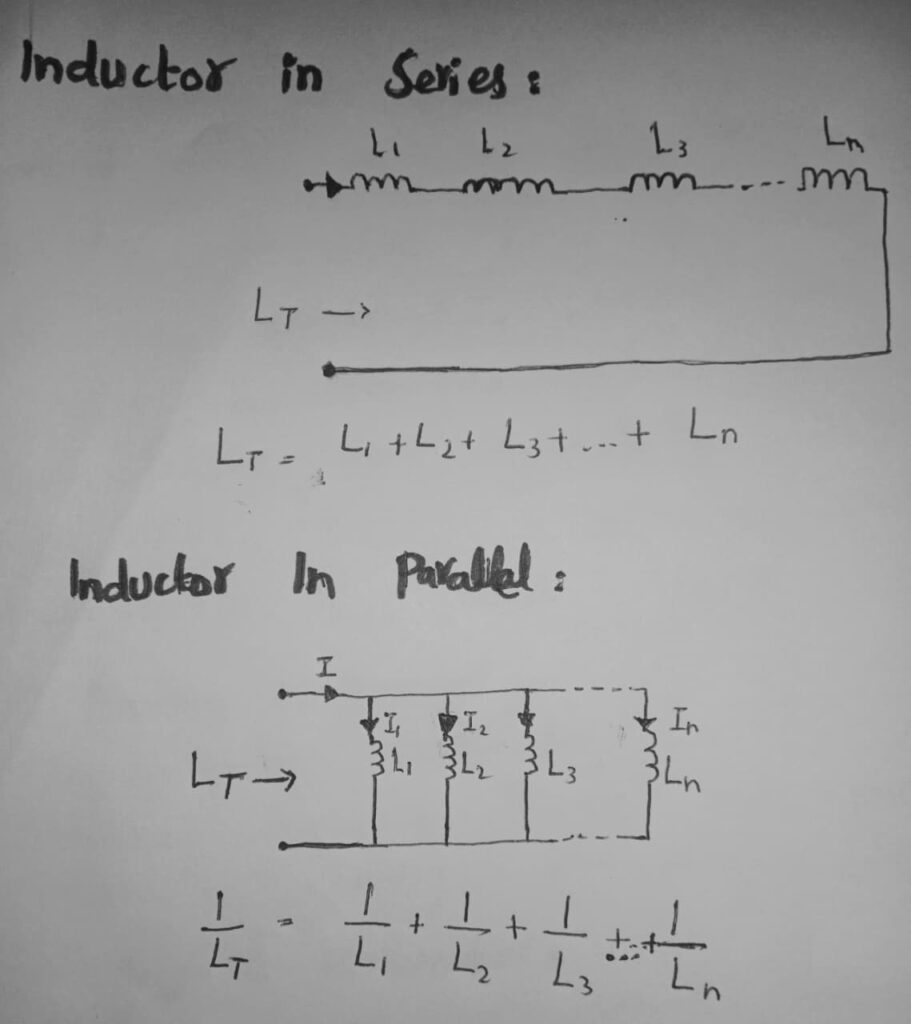 Inductor in Series :
L₁ L₂ L₃ Ln
L_T →
L_T = L₁ + L₂ + L₃ + ... + Ln
Inductor In Parallel :
I
I₁ I₂ In
L_T → L₁ L₂ L₃ Ln
1/L_T = 1/L₁ + 1/L₂ + 1/L₃ + ... + 1/Ln